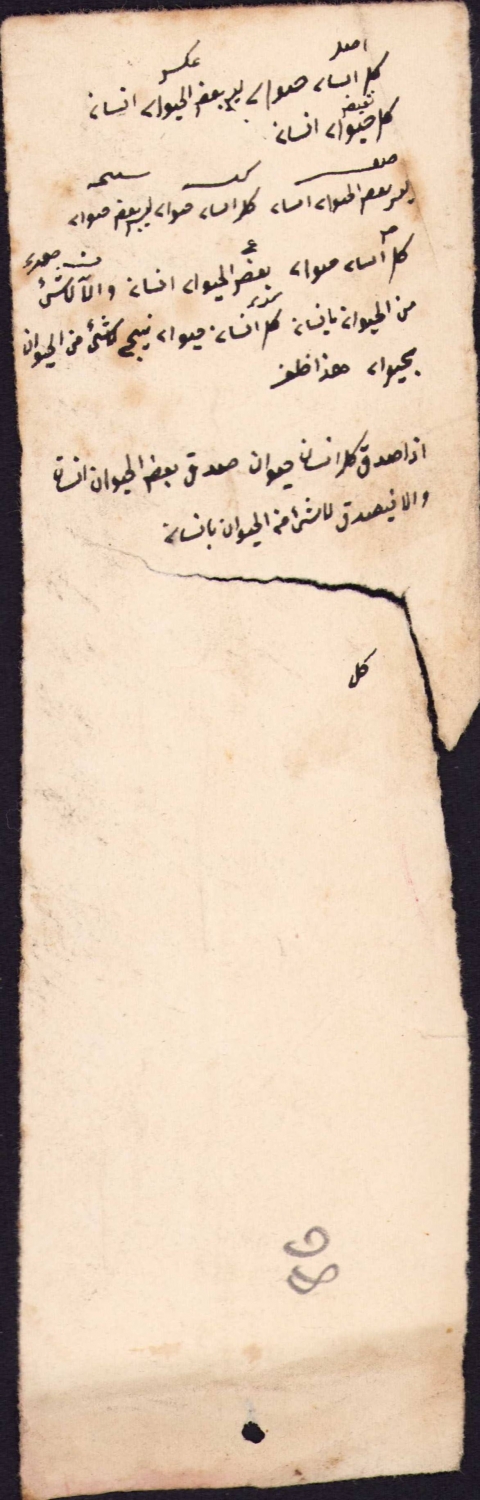 اصل عكس
كل انسان حيوان ليس بعض الحيوان انسان
نقيض
كل حيوان انسان
ليس بعض الحيوان انسان كل انسان حيوان ليس بعض حيوان
كل انسان حيوان بعض الحيوان انسان والا لاشئ
من الحيوان بانسان كل انسان حيوان ينتج لاشئ من الحيوان
بحيوان هذا خلف
اذا صدق كل انسان حيوان صدق بعض الحيوان انسان
والا فيصدق لاشئ من الحيوان بانسان
كل